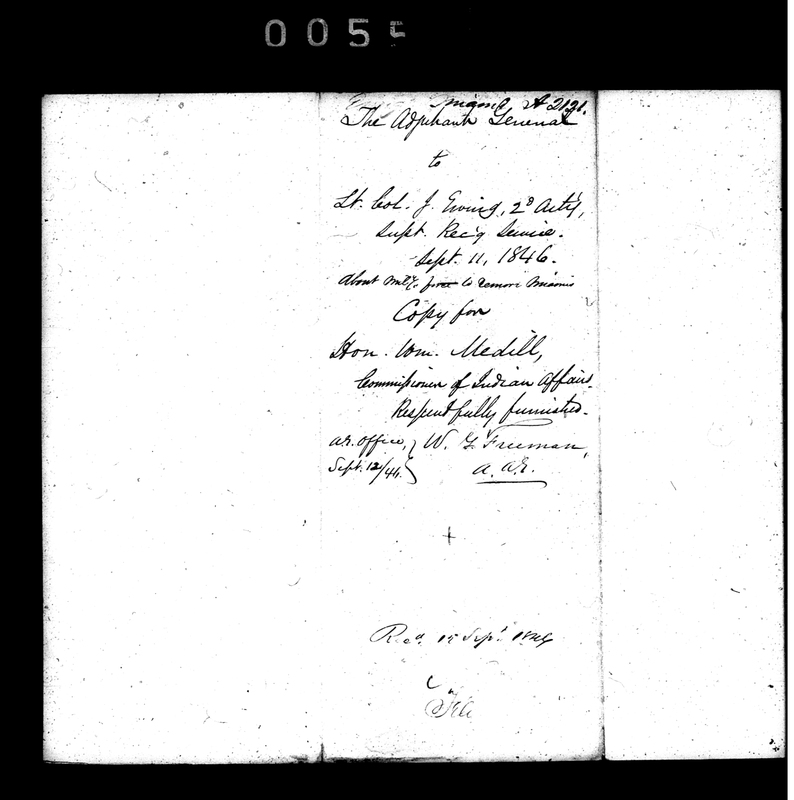 0055
Miami A 2121.
The Adjutant General
to
Lt. Col. J. Ewing, 2d Arty,
Supt. Rec'g Service.
Sept. 11, 1846.
About mily. force to remove Miamis
Copy for
Hon. Wm. Medill,
Commissioner of Indian Affairs.
Respectfully furnished.
A.G. Office, } W. G. Freeman,
Sept. 12/46. } A. A. G.
Recd. 15 Sept. 1846